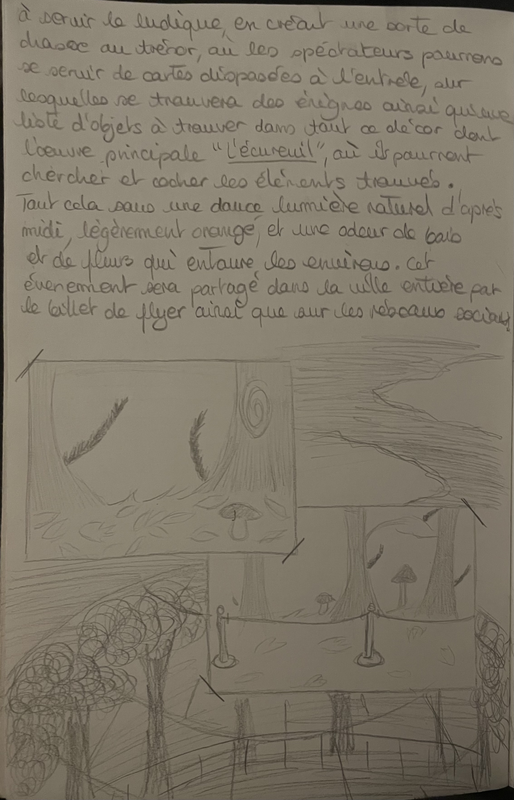 à servir le ludique, en créant une sorte de
chasse au trésor, où les spéctateurs pourrons
se servir de cartes disposées à l'entrée, sur
lesquelles se trouvera des énigmes ainsi qu'une
liste d'objets à trouver dans tout ce décor dont
l'oeuvre principale "L'écureuil", où ils pourront
chercher et cocher les éléments trouvés.
Tout cela sous une douce lumière naturel d'après
midi, légèrement orangé, et une odeur de bois
et de fleurs qui entoure les environs. Cet
évenement sera partagé dans la ville entière par
le billet de flyer ainsi que sur les réseaux sociaux